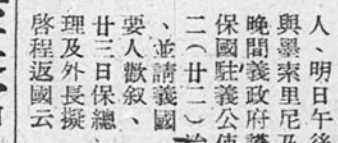 人、明日午後
與墨索里尼及
晚間義政府
保國駐義公使
二（廿二）
、並請義國
要人歡叙、
廿三日保總
理及外長擬
啓程返國云